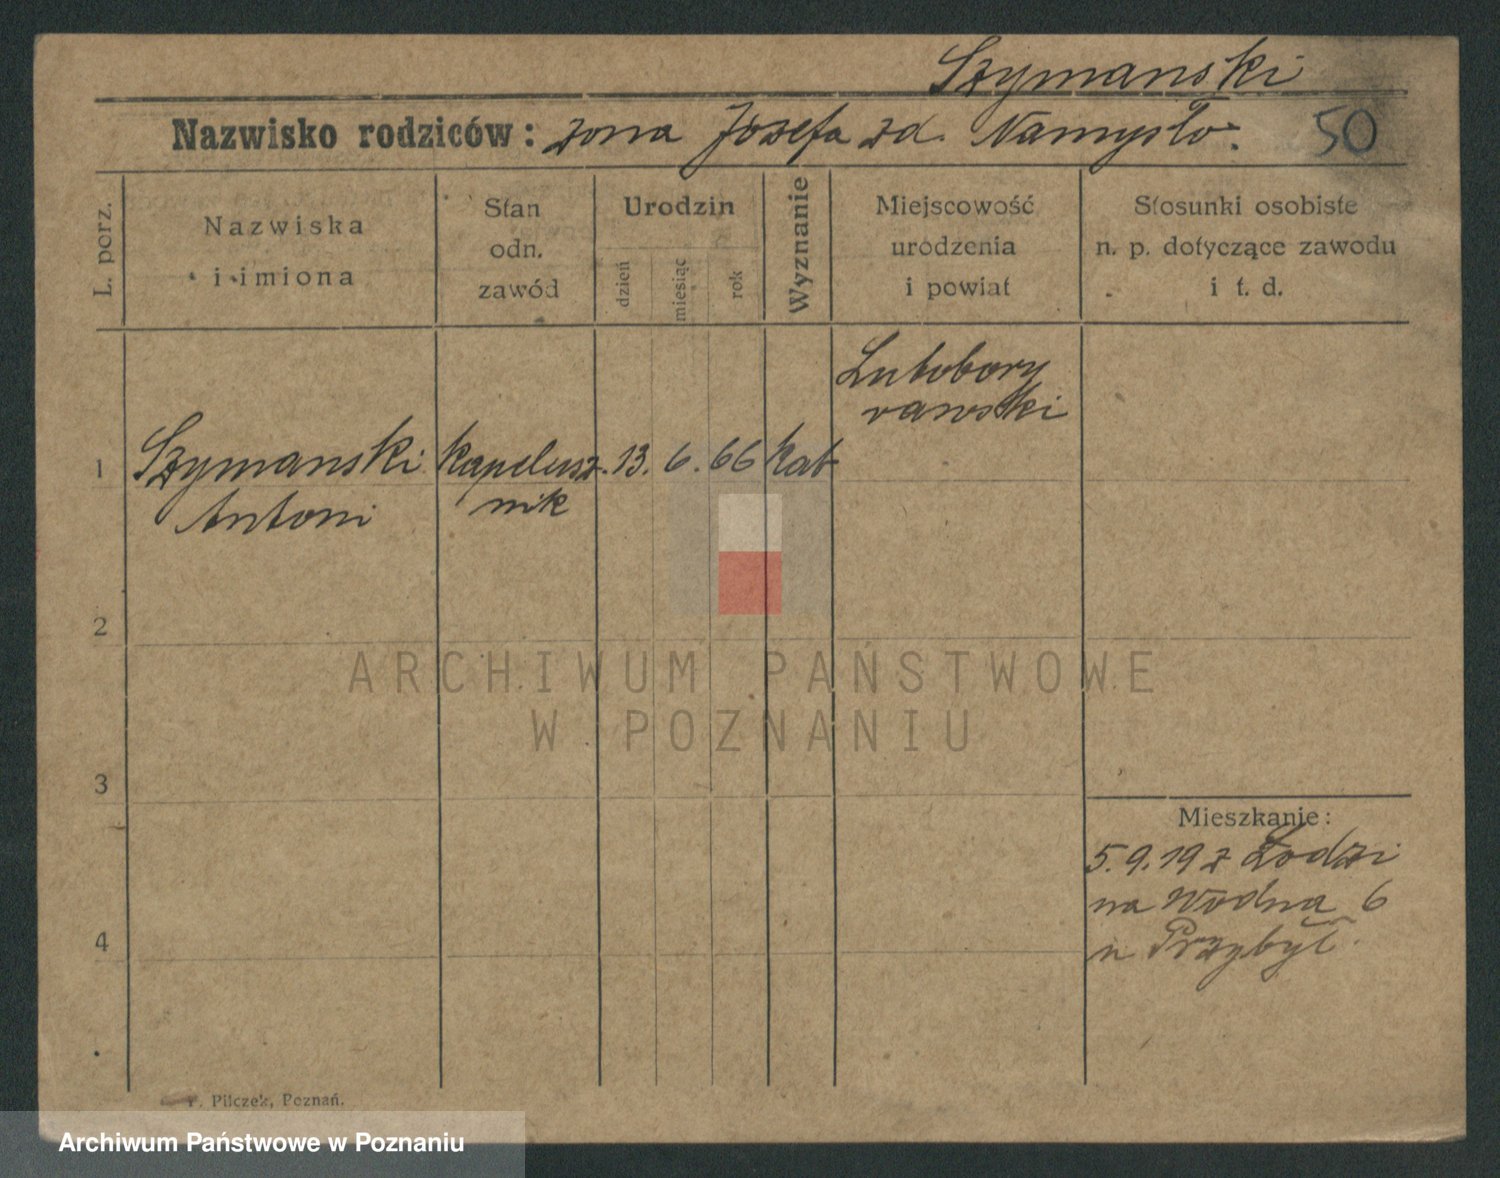 Szymanski
Nazwisko rodziców: żona Józefa zd. Namysło. 50
L. porz.
Nazwiska
i imiona
Stan
odn.
zawód
Urodzin
dzień
miesiąc
rok
Wyznanie
Miejscowość
urodzenia
i powiat
Stosunki osobiste
n. p. dotyczące zawodu
i t. d.
Lutobory
rawski
1 Szymanski kapelusz. 13. 6. 66 kat
Antoni nik
2
ARCHIWUM PAŃSTWOWE
W POZNANIU
3
Mieszkanie:
5.9.19 z Łodzi
na Wodna 6
u Przybył.
4
P. Pilczek, Poznań.
Archiwum Państwowe w Poznaniu